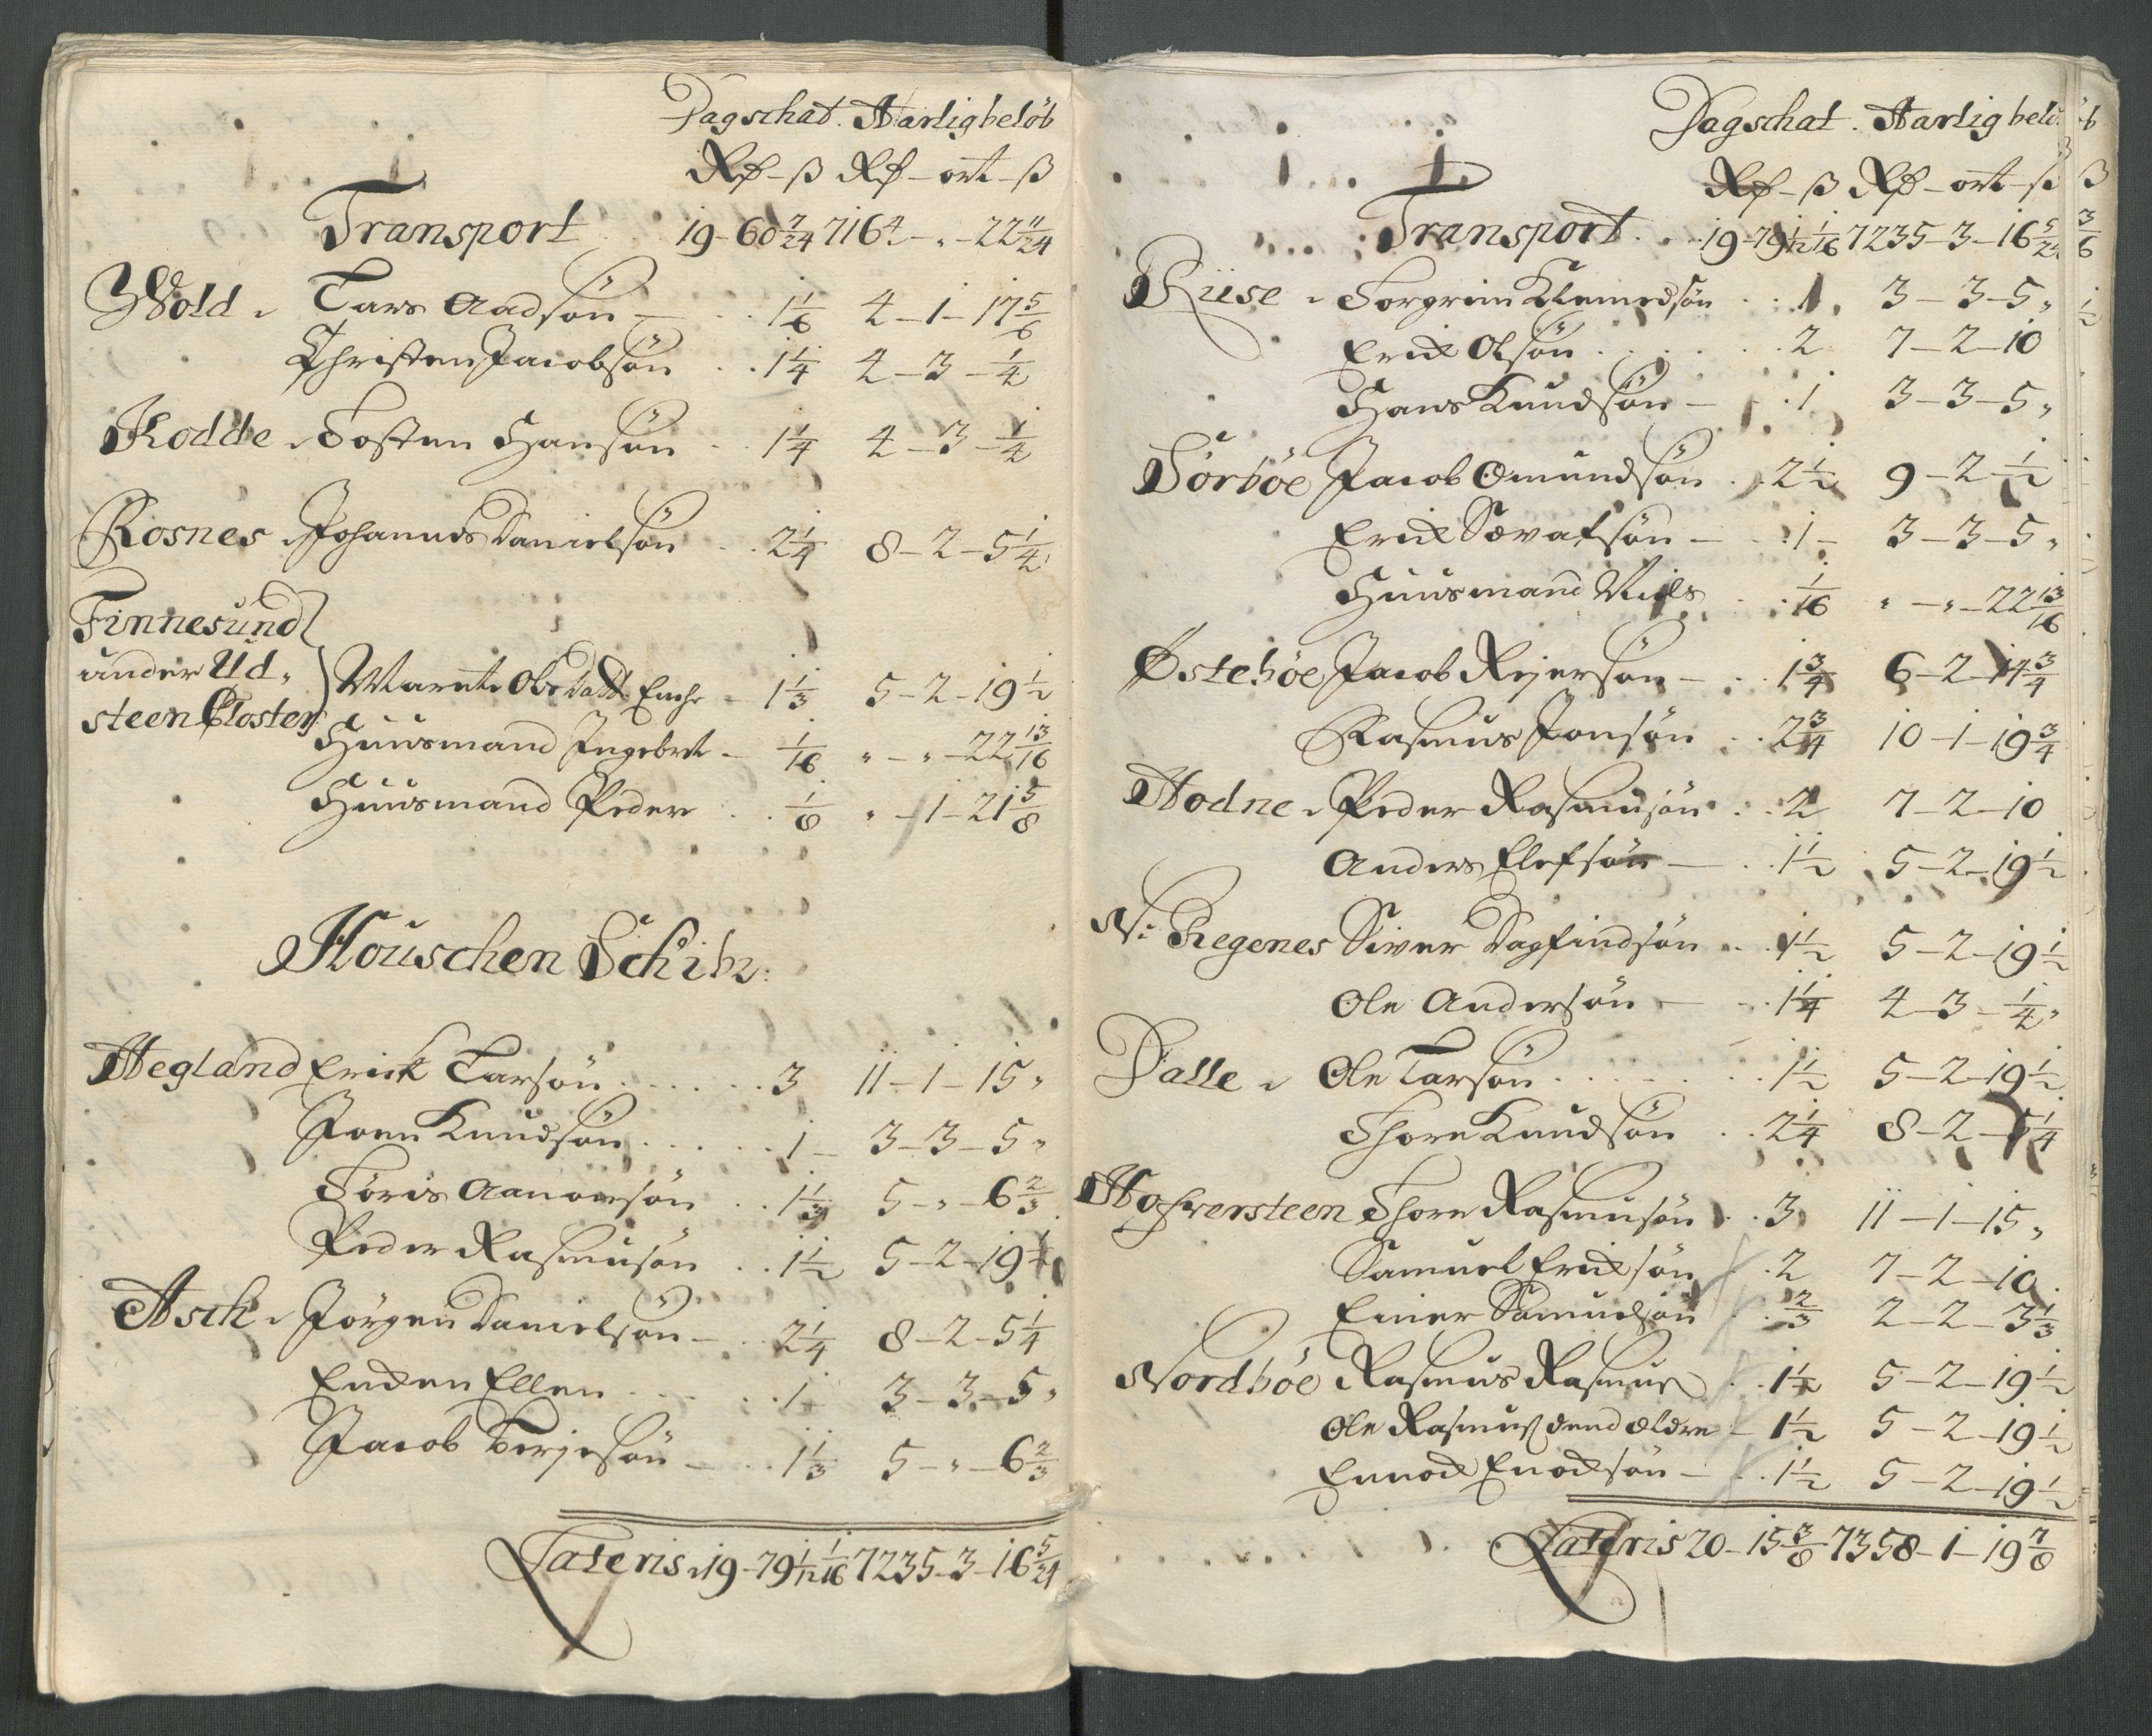 Dagschat. Aarlig beløb
Rd - ß Rd - ort - ß
Transport 19 - 60 7/24 7164 - " - 22 11/24
Wold Lars Aadsøn - 1 1/6 4 - 1 - 17 5/6
Christen Jacobsøn 1 1/4 4 - 3 - 1/4
Kodde Tosten Hansøn 1 1/4 4 - 3 - 1/4
Rosnes Johannes Danielsøn 2 1/4 8 - 2 - 5 1/4
Finnesund
under Ud,
steen Closter Marete Olsdatt. Enche - 1 1/3 5 - 2 - 19 1/2
Huusmand Ingebret - 1/16 " - " - 22 13/16
Huusmand Peder 1/8 " - 1 - 21 5/8
Houschen Schib:
Hegland Erick Larsøn 3 11 - 1 - 15 "
Joen Knudsøn 1 - 3 - 3 - 5 "
Toris Aanonsøn 1 1/3 5 - " - 6 2/3
Peder Rasmusøn 1 1/2 5 - 2 - 19 1/2
Asch Jørgen Danielsøn - 2 1/4 8 - 2 - 5 1/4
Encken Ellen 1 3 - 3 - 5 "
Jacob Terjesøn - 1 1/3 5 - " - 6 2/3
Lateris 19 - 79 1/12 1/16 7235 - 3 - 16 5/24
Dagschat. Aarlig belø
Rd - ß Rd - ort - ß
Transport 19 - 79 1/12 1/16 7235 - 3 - 16 5/24
Riise Torgrim Klemedsøn 1 3 - 3 - 5 "
Erick Olsøn 2 7 - 2 - 10
Hans Knudsøn - 1 3 - 3 - 5 "
Sørbøe Jacob Omundsøn 2 1/2 9 - 2 - 1/2
Erick Sævatsøn - 1 - 3 - 3 - 5 "
Huusmand Niels 1/16 " - " - 22 13/16
Østebøe Jacob Rejersøn - 1 3/4 6 - 2 - 14 3/4
Rasmus Jonsøn 2 3/4 10 - 1 - 19 3/4
Hodne Peder Rasmusøn 2 7 - 2 - 10
Anders Elefsøn - 1 1/2 5 - 2 - 19 1/2
N: Regenes Siver Dagfindsøn 1 1/2 5 - 2 - 19 1/2
Ole Andersøn - 1 1/4 4 - 3 - 1/4 "
Dalle Ole Larsøn 1 1/2 5 - 2 - 19 1/2
Thore Knudsøn 2 1/4 8 - 2 - 5 1/4
Thore Rasmusøn 3 11 - 1 - 15 "
Samuel Ericksøn 2 7 - 2 - 10
Einer Samuelsøn 2/3 2 - 2 - 3 1/3
Nordbøe Rasmus Rasmus 1 1/2 5 - 2 - 19 1/2
Ole Rasmus dend ældre - 1 1/2 5 - 2 - 19 1/2
Ennock Enocksøn - 1 1/2 5 - 2 - 19 1/2
Lateris 20 - 15 3/8 7358 - 1 - 19 7/8